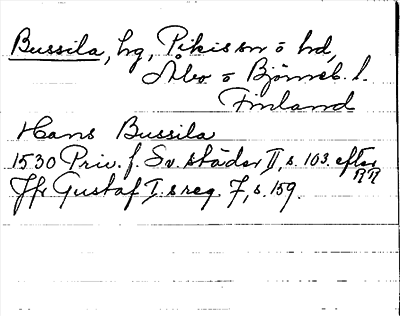 Bussila, hg, Pikis sn o hd,
Åbo o Björneb. l.
Finland
Hans Bussila
1530 Priv. f. Sv. städer II, s. 103. efter
RR
Jfr Gustaf I:s reg. 7, s. 159.